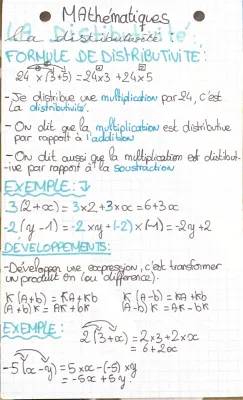 MAthématiques
La distributivité :
FORMULE DE DISTRIBUTIVITE :
24 x (3+5) = 24x3 + 24x5
- Je distribue une multiplication par 24, c'est
La distributivité.
- On dit que la multiplication est distributive
par rapport à l'addition
- On dit aussi que la multiplication est distribut-
-ive par rapport à la soustraction
EXEMPLE :
3(2+x) = 3x2 + 3xx = 6+3x
-2(y-1) = -2xy + (-2) x (-1) = -2y + 2
DEVELOPPEMENTS :
- Développer une expression, c'est transformer
un produit en (ou différence).
K(A+b) = KA+Kb K(A-b) = KA+Kb
(A+b)K = AK+bK (A-b)K = AK-bK
EXEMPLE : 2(3+x) = 2x3 + 2xx
= 6 + 2x
-5(x-y) = 5xx - (-5) xy
= -5x + 5y.